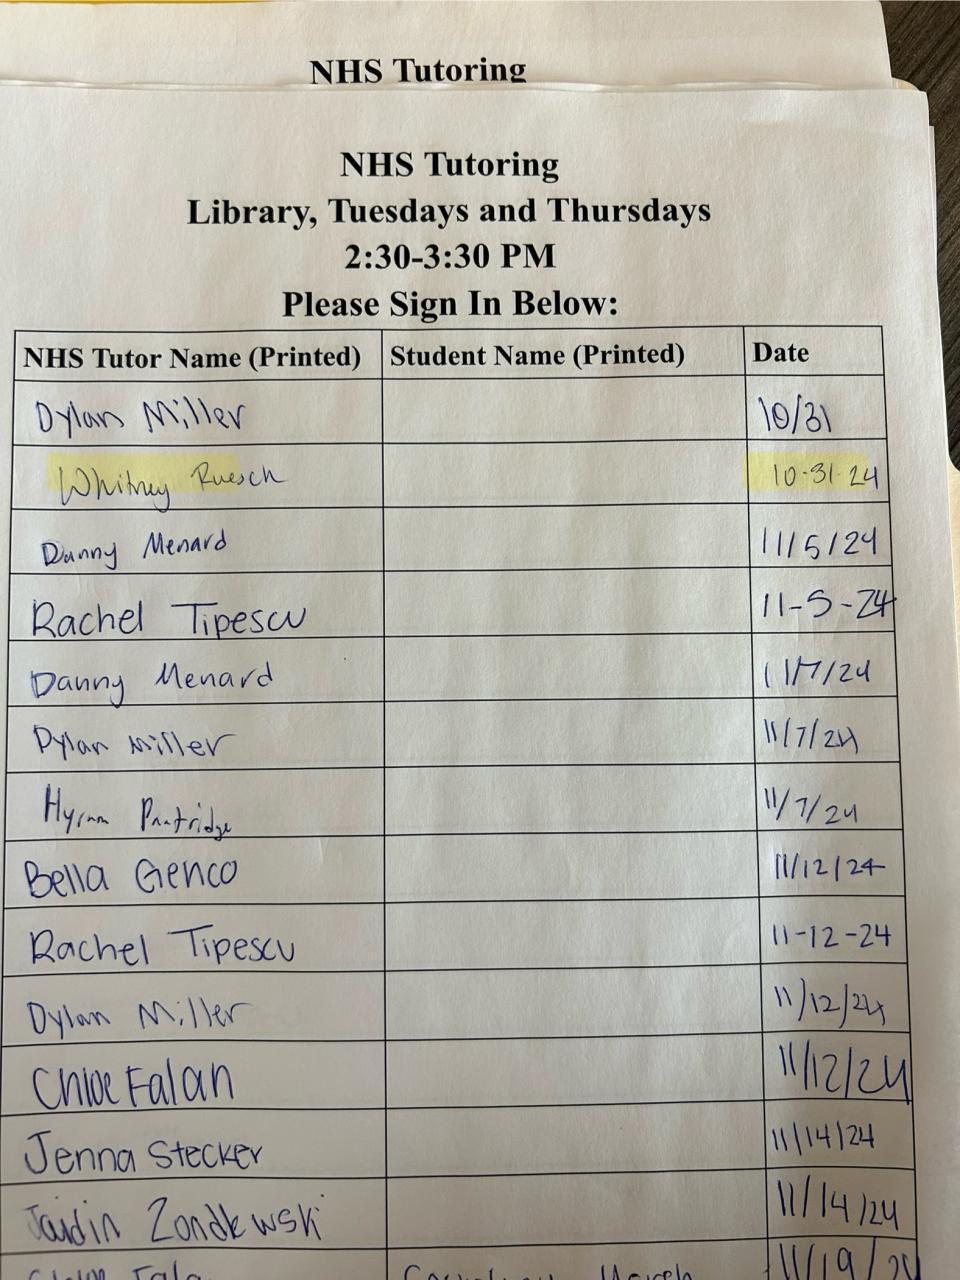 NHS Tutoring
NHS Tutoring
Library, Tuesdays and Thursdays
2:30-3:30 PM
Please Sign In Below:
NHS Tutor Name (Printed) Student Name (Printed) Date
Dylan Miller 10/31
Whitney Ruesch 10-31-24
Danny Menard 11/5/24
Rachel Tipescu 11-5-24
Danny Menard 11/7/24
Dylan Miller 11/7/24
Hyrum Partridge 11/7/24
Bella Genco 11/12/24
Rachel Tipescu 11-12-24
Dylan Miller 11/12/24
Chloe Falan 11/12/24
Jenna Stecker 11/14/24
Zondlewski 11/14/24
11/19/24